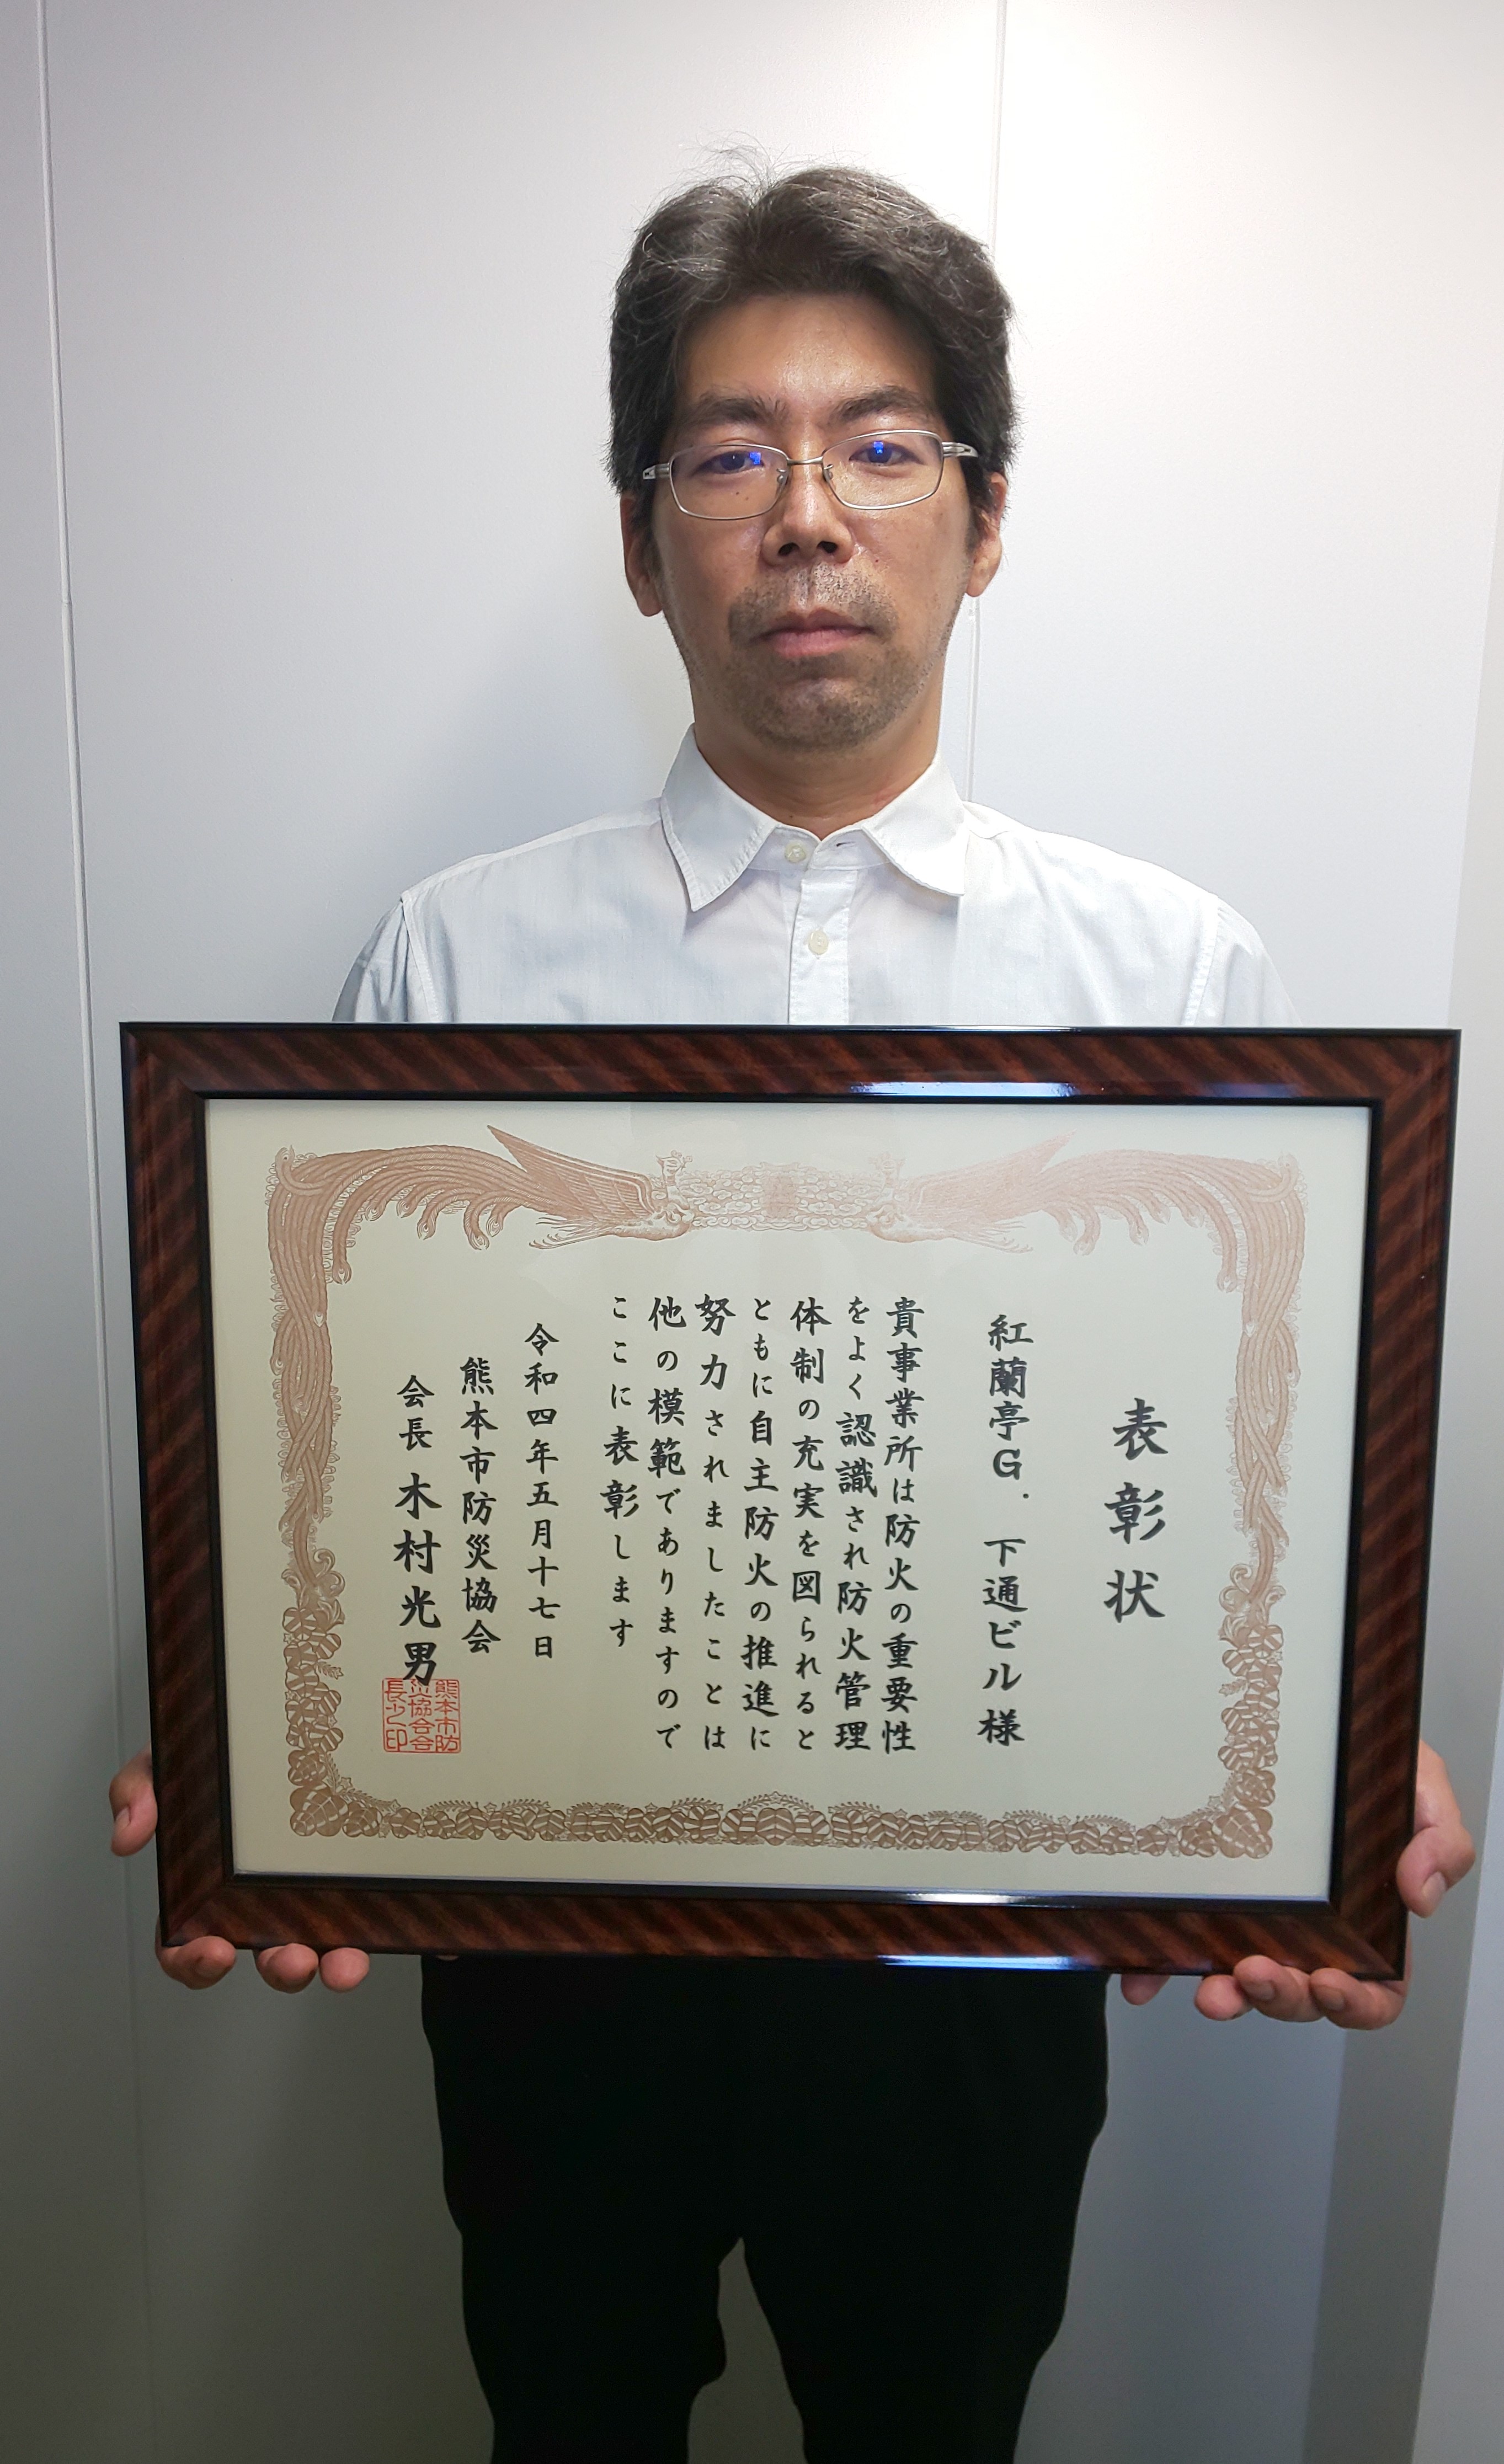 表彰状
紅蘭亭G. 下通ビル様
貴事業所は防火の重要性
をよく認識され防火管理
体制の充実を図られると
ともに自主防火の推進に
努力されましたことは
他の模範でありますので
ここに表彰します
令和四年五月十七日
熊本市防災協会
会長 木村光男
熊本市防
災協会会
長之印